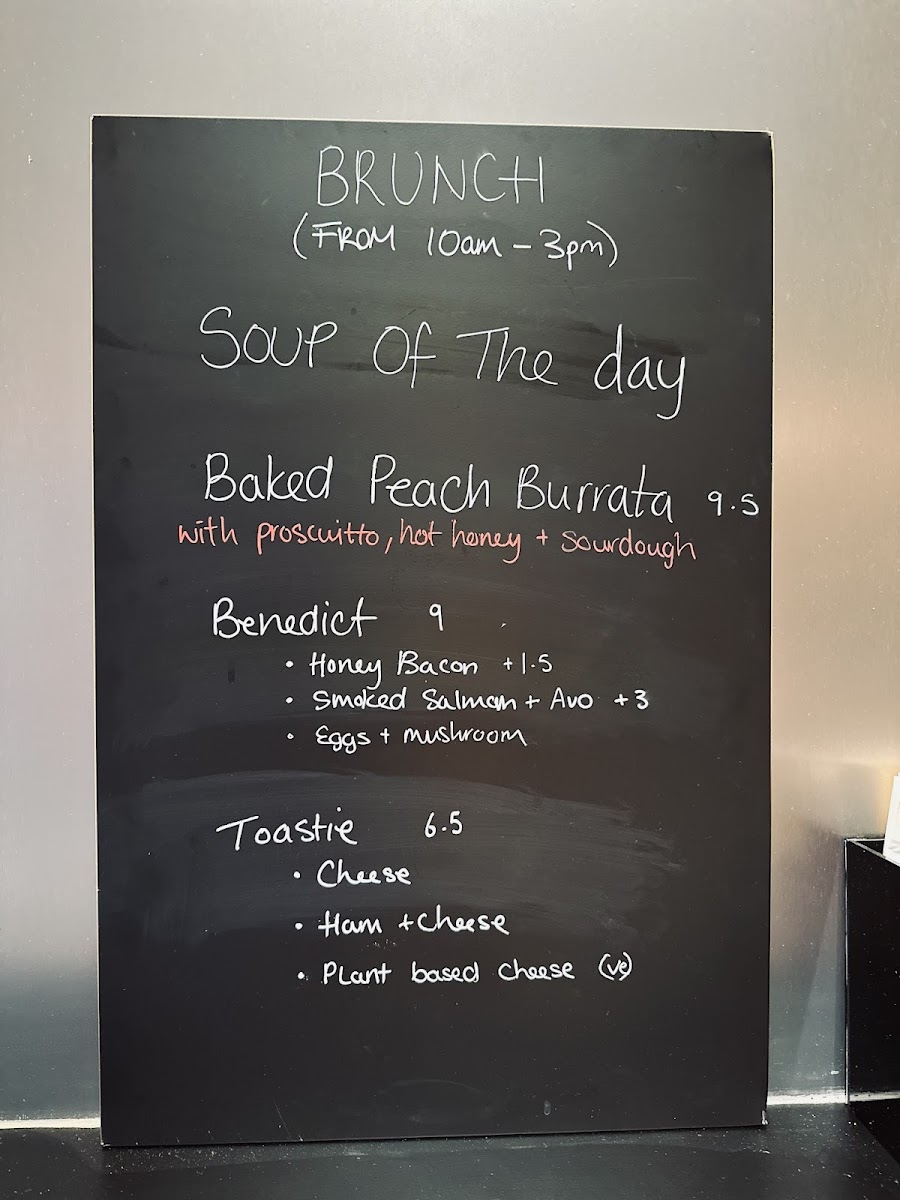 BRUNCH
(FROM 10am - 3pm)
Soup Of The day
Baked Peach Burrata 9.5
with proscuitto, hot honey + sourdough
Benedict 9
• Honey Bacon +1.5
• Smoked Salmon + Avo +3
• Eggs + mushroom
Toastie 6.5
• Cheese
• Ham + Cheese
• Plant based cheese (ve)